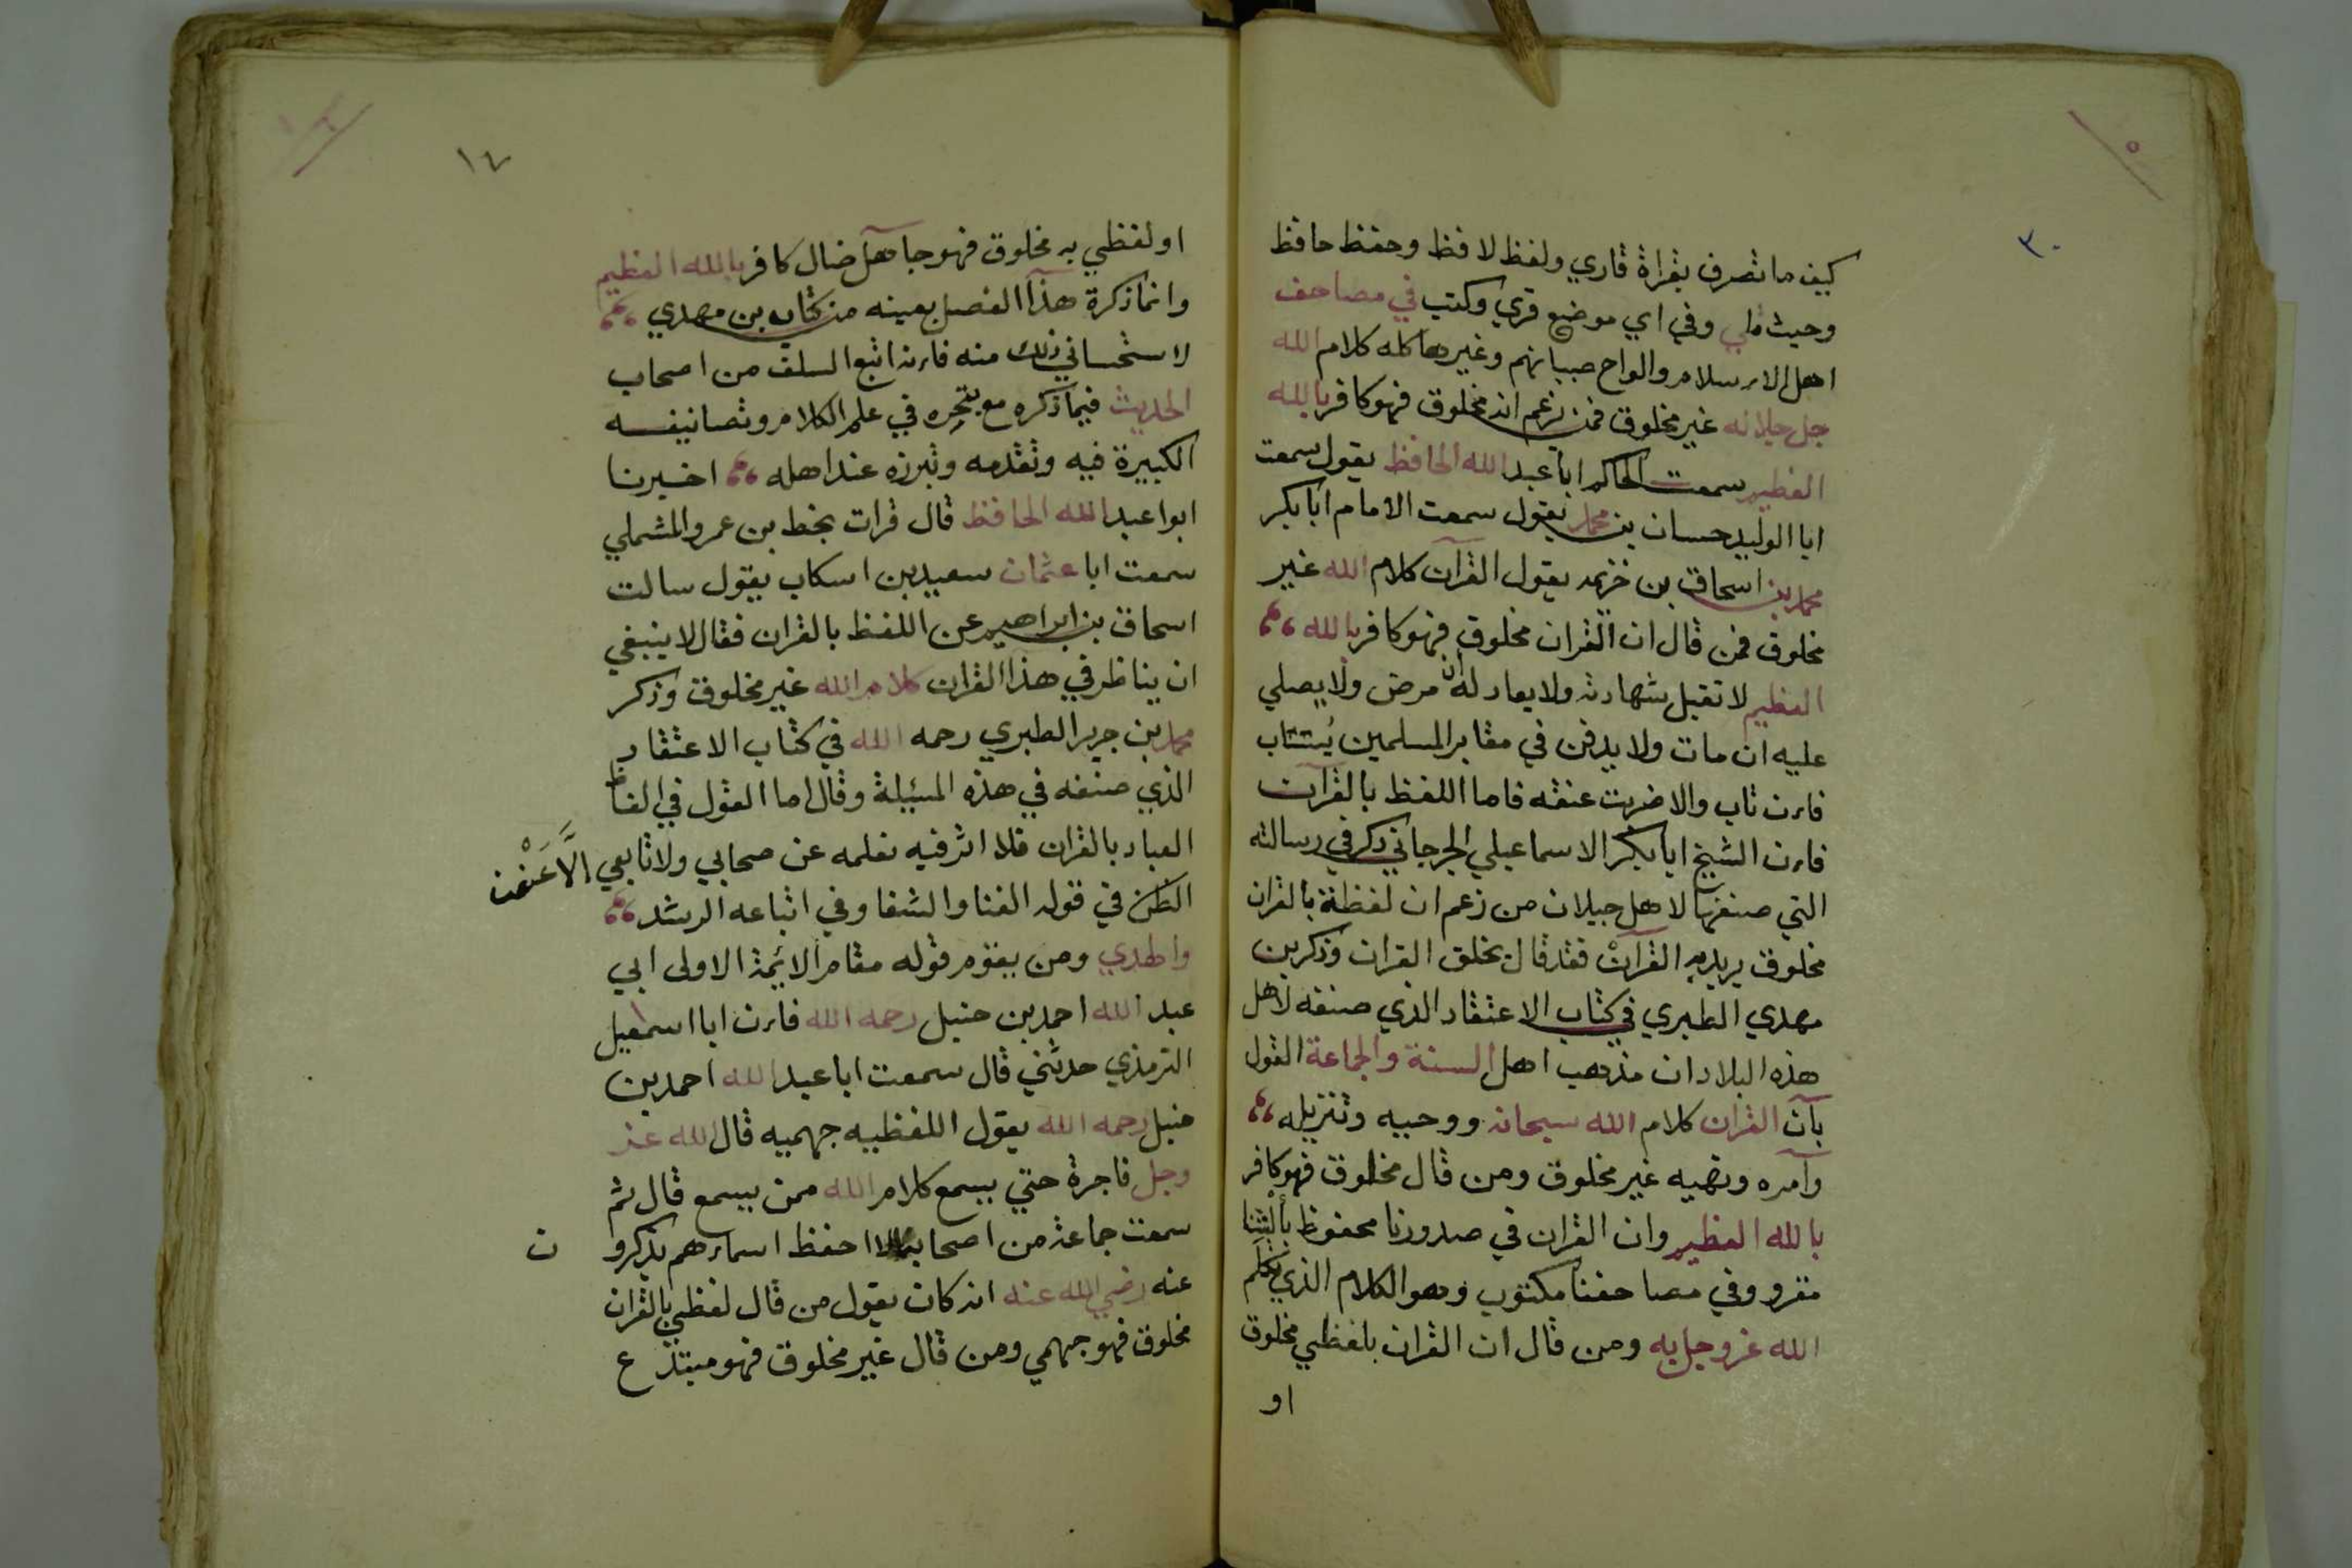 ٣٠
كيف ما تصرف بقراة قاري ولفظ لافظ وحفظ حافظ
وحيث تلي وفي اي موضع قري وكتب في مصاحف
اهل الاسلام والواح صبيانهم وغيرها كله كلام الله
جل جلاله غير مخلوق فمن زعم انه مخلوق فهو كافر بالله
العظيم سمعت الحاكم ابا عبد الله الحافظ يقول سمعت
ابا الوليد حسان بن محمد يقول سمعت الامام ابا بكر
محمد بن اسحاق بن خزيمه يقول القرآن كلام الله غير
مخلوق فمن قال ان القران مخلوق فهو كافر بالله
العظيم لا تقبل شهادته ولا يعاد له ان مرض ولا يصلي
عليه ان مات ولا يدفن في مقابر المسلمين يُستتاب
فان تاب والا ضربت عنقه فاما اللفظ بالقرآن
فان الشيخ ابا بكر الاسماعيلي الجرجاني ذكر في رسالته
التي صنفها لاهل جيلان من زعم ان لفظة بالقران
مخلوق يريد به القرآن فقد قال بخلق القران وذكر بن
مهدي الطبري في كتاب الاعتقاد الذي صنفه لاهل
هذه البلاد ان مذهب اهل السنة والجماعة القول
بآن القران كلام الله سبحانه ووحييه وتنزيله
وآمره ونهيه غير مخلوق ومن قال مخلوق فهو كافر
بالله العظيم وان القران في صدورنا محفوظ بألسنتنا
مقرو وفي مصاحفنا مكتوب وهو الكلام الذي تكلم
الله عز وجل به ومن قال ان القران بلفظي مخلوق
او
١٧
او لفظي به مخلوق فهو جاهل ضال كافر بالله العظيم
وانما ذكرة هذا الفصل بعينه من كتاب بن مهدي
لاستحساني ذلك منه فانه اتبع السلف من اصحاب
الحديث فيما ذكره مع تبحره في علم الكلام وتصانيفه
الكبيرة فيه وتقدمه وتبرزه عند اهله اخبرنا
ابوا عبد الله الحافظ قال قرات بخط بن عمرو المشملي
سمعت ابا عثمان سعيد بن اسكاب يقول سالت
اسحاق بن ابراهيم عن اللفظ بالقران فقال لا ينبغي
ان يناظر في هذا القران كلام الله غير مخلوق وذكر
محمد بن جرير الطبري رحمه الله في كتاب الاعتقاد
الذي صنفه في هذه المسئيلة وقال اما القول في الفاظ
العباد بالقران فلا اثر فيه نعلمه عن صحابي ولا تابعي الَّا عَنْ من
الظن في قوله الغنا والشفا وفي اتباعه الرشد
والهدي ومن يقوم قوله مقام الائمة الاولى ابي
عبد الله احمد بن حنبل رحمه الله فان ابا اسمعيل
الترمذي حدثني قال سمعت ابا عبد الله احمد بن
حنبل رحمه الله يقول اللفظيه جهميه قال الله عز
وجل فاجرة حتي يسمع كلام الله ممن يسمع قال ثم
سمعت جماعة من اصحابنا لا احفظ اسماءهم يذكرو ن
عنه رضي الله عنه انه كان يقول من قال لفظي بالقران
مخلوق فهو جهمي ومن قال غير مخلوق فهو مبتدع